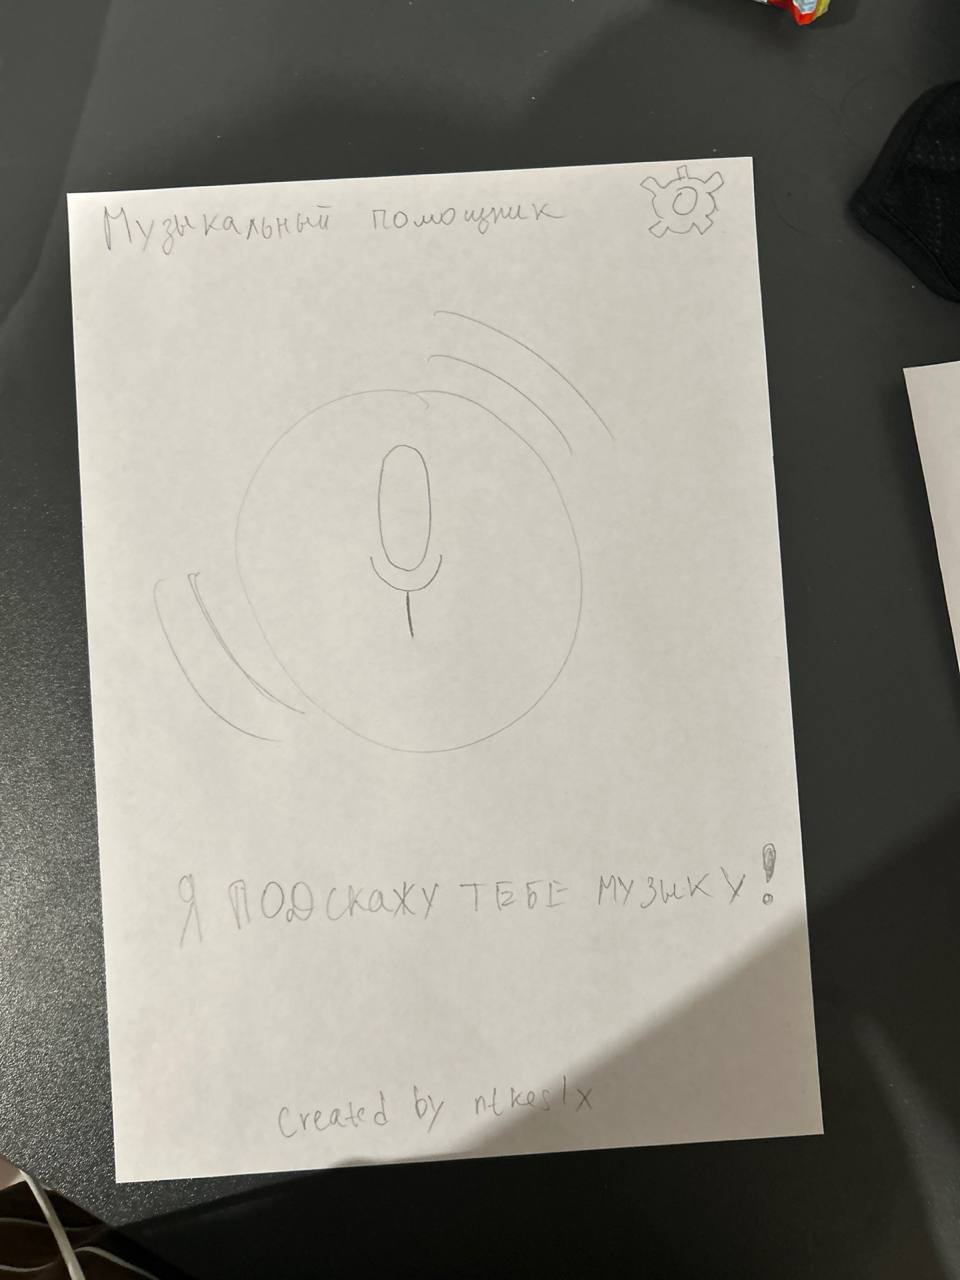 Музыкальный помощник
Я ПОДСКАЖУ ТЕБЕ МУЗЫКУ!
created by ntkeslx